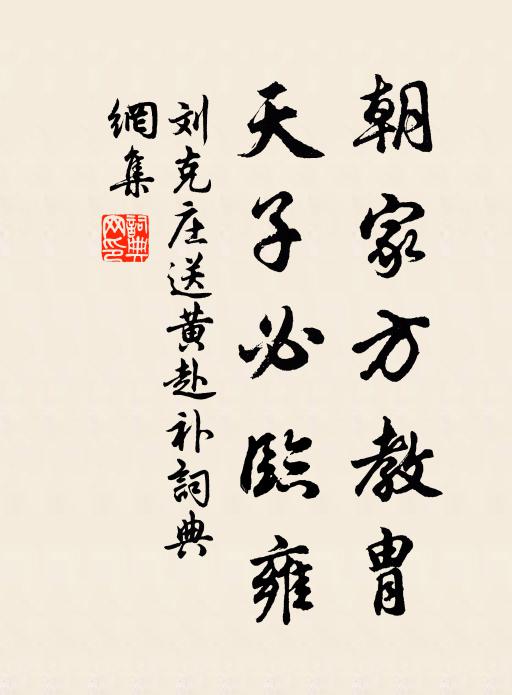 朝家方教胄
天子必臨雍
刘克庄送黄赴补詞典
網集
詞典
网印